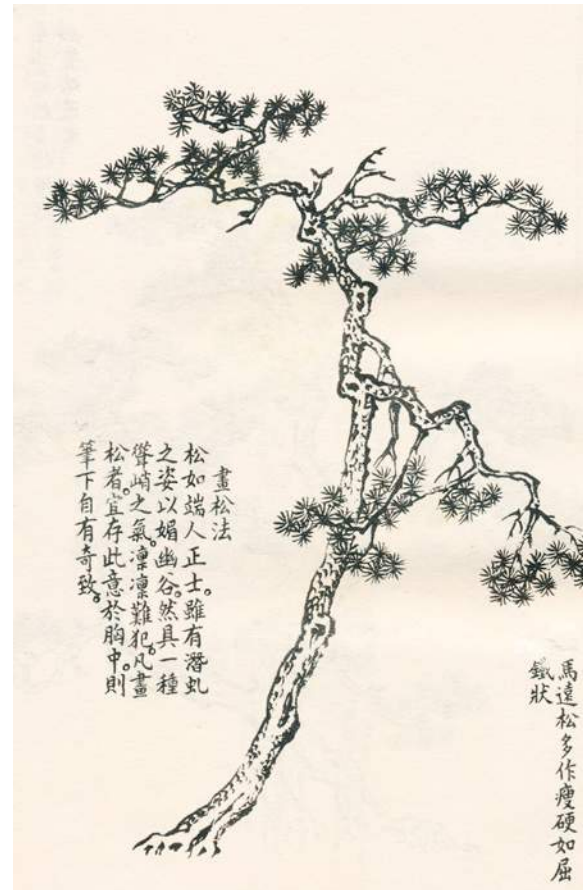 馬遠松多作瘦硬如屈
鐵狀
畫松法
松如端人正士。雖有潛虬
之姿以媚幽谷。然具一種
聳峭之氣。凜凜難犯。凡畫
松者。宜存此意於胸中。則
筆下自有奇致。